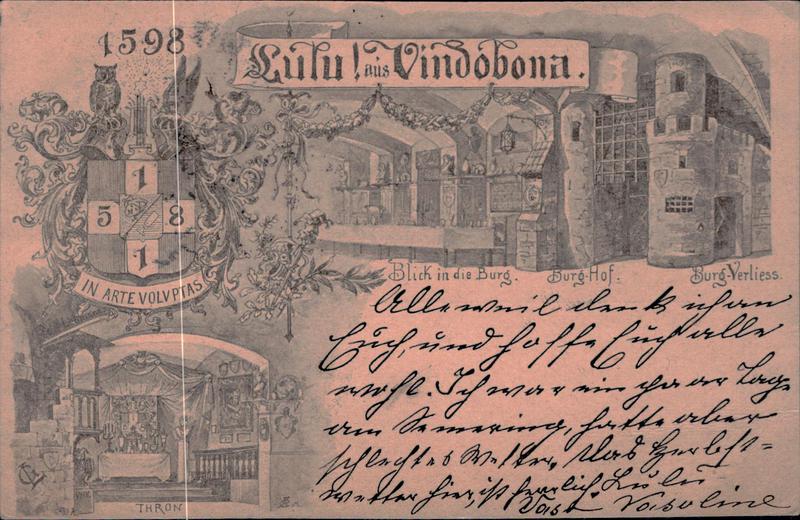 1598
Lulu! aus Vindobona.
1
5 8
1
IN ARTE VOLVPTAS
Blick in die Burg. Burg-Hof. Burg-Verliess.
Alleweil denk ich an
Euch, und hoffe Euch alle
wohl. Ich war ein paar Tage
am Semering, hatte aber
schlechtes Wetter. Das Herbst=
wetter hier, ist herrlich. Lulu
Vasoline
THRON